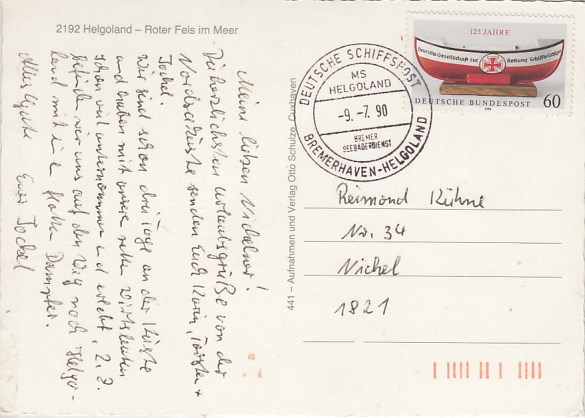 2192 Helgoland – Roter Fels im Meer
Meine lieben Nichelner!
Die herzlichsten Urlaubsgrüße von der
Nordseeküste senden Euch Karin, Torsten +
Jockel.
Wir sind schon drei Tage an der Küste
und haben mit unseren netten Wirtsleuten
schon viel unternommen und erlebt. Z. Z.
befinden wir uns auf dem Weg nach Helgo-
land mit einem flotten Dampfer.
Alles Gute Euer Jockel
441 – Aufnahmen und Verlag Otto Schulze, Cuxhaven
DEUTSCHE SCHIFFSPOST
MS
HELGOLAND
-9.-7.90
BREMER
SEEBÄDERDIENST
BREMERHAVEN-HELGOLAND
125 JAHRE
Deutsche Gesellschaft zur Rettung Schiffbrüchiger
DEUTSCHE BUNDESPOST 60
Reimond Kühne
Nr. 34
Nichel
1821